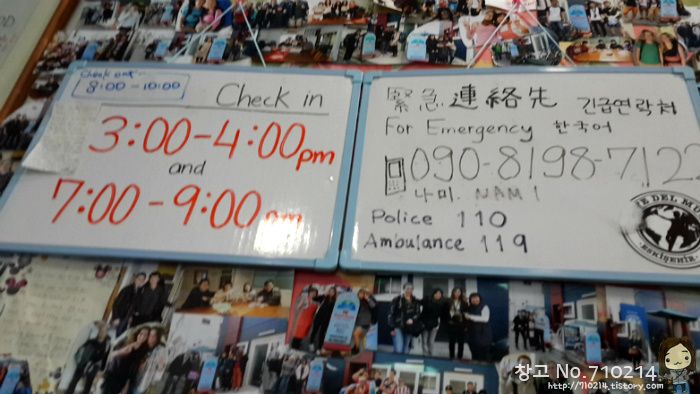 Check out -
8:00 - 10:00
Check in
3:00 - 4:00 pm
and
7:00 - 9:00 pm
緊急連絡先 긴급연락처
For Emergency 한국어
090-8198-712
나미. NAMI
Police 110
Ambulance 119
TE DEL MU
ESKİŞEHİR
창고 No.710214
http://710214.tistory.com/